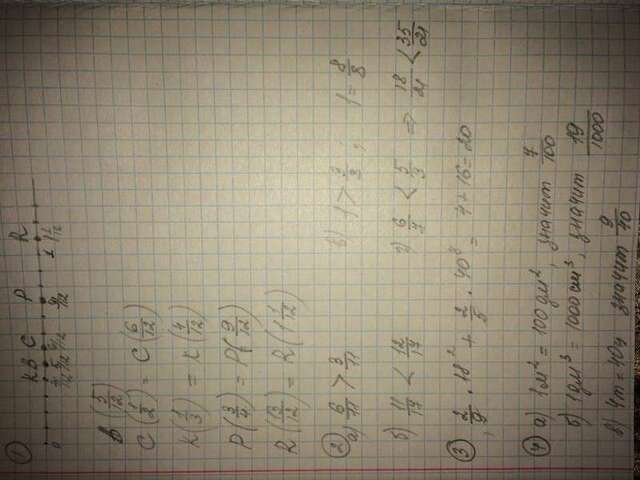 ①
K B C P R
0 4/12 5/12 6/12 9/12 1 1 1/12
B (5/12)
C (1/2) = C (6/12)
K (1/3) = K (4/12)
P (3/4) = P (9/12)
R = R (1 1/12)
②
а) 6/11 > 3/11 в) 1 > ; 1 = 8/8
б) 11/17 < 12/17 г) 6/7 < 5/3 ⇒ 18/21 < 35/21
③ 2/9 · 18² + 2/5 · 40⁸ = 4 + 16 = 20
④ а) 1м² = 100дм², значит 7/100
б) 1дм³ = 1000см³, значит 19/1000
в) 4т = 40ц значит 9/40